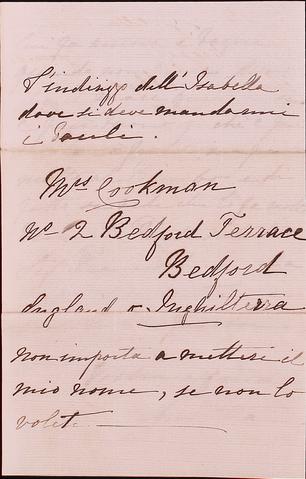 l'indirizzo dell'Isabella
dove si deve mandarmi
i
Mrs Cookman
No 2 Bedford Terrace
Bedford
England o Inghilterra
non importa a mettersi il
mio nome, se non lo